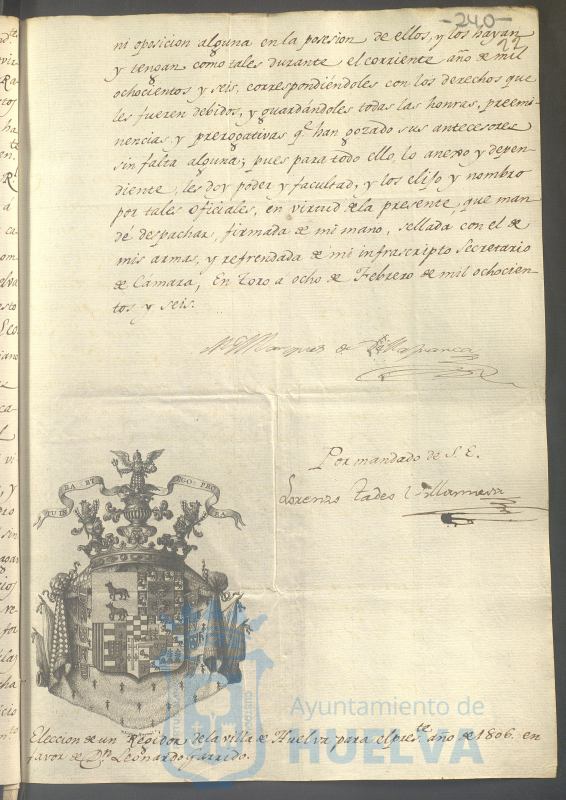 -240-
22
ni oposicion alguna en la posesion de ellos, y los hayan
y tengan como tales durante el corriente año de mil
ochocientos y seis, correspondiéndoles con los derechos que
les fueren debidos, y guardándoles todas las honras, preemi
nencias, y prerogativas q.e han gozado sus antecesores
sin falta alguna; pues para todo ello, lo anexo y depen
diente, les doy poder y facultad, y los elijo y nombro
por tales Oficiales, en virtud de la presente, que man
dé despachar, firmada de mi mano, sellada con el de
mis armas, y refrendada de mi infrascripto Secretario
de Cámara, En Toro a ocho de Febrero de mil ochocien-
tos y seis.
El Marques de Villafranca
Por mandado de S. E.
Lorenzo Tadeo Villanueva
Eleccion de un Regidor de la villa de Huelva para el pres.te año de 1806. en
favor de D.n Leonardo Garrido.
Ayuntamiento de
HUELVA